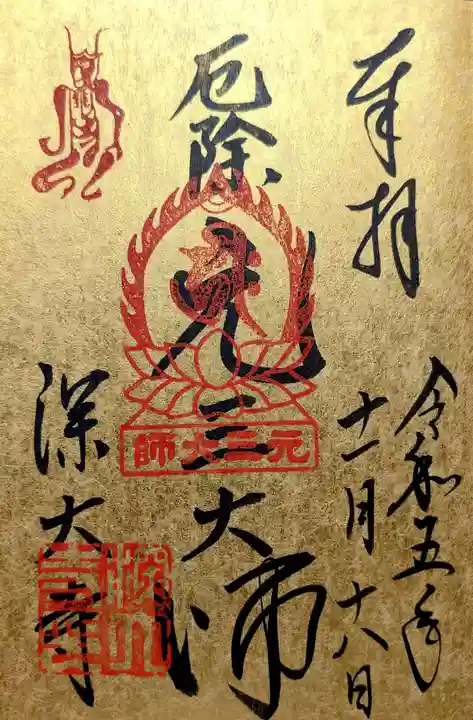 奉拝
令和五年
十一月十八日
厄除
元三大師
元三大師
深大寺